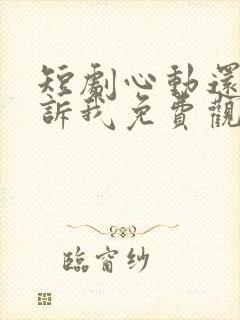 短劇心動還
訴我免費觀
臨窗紗